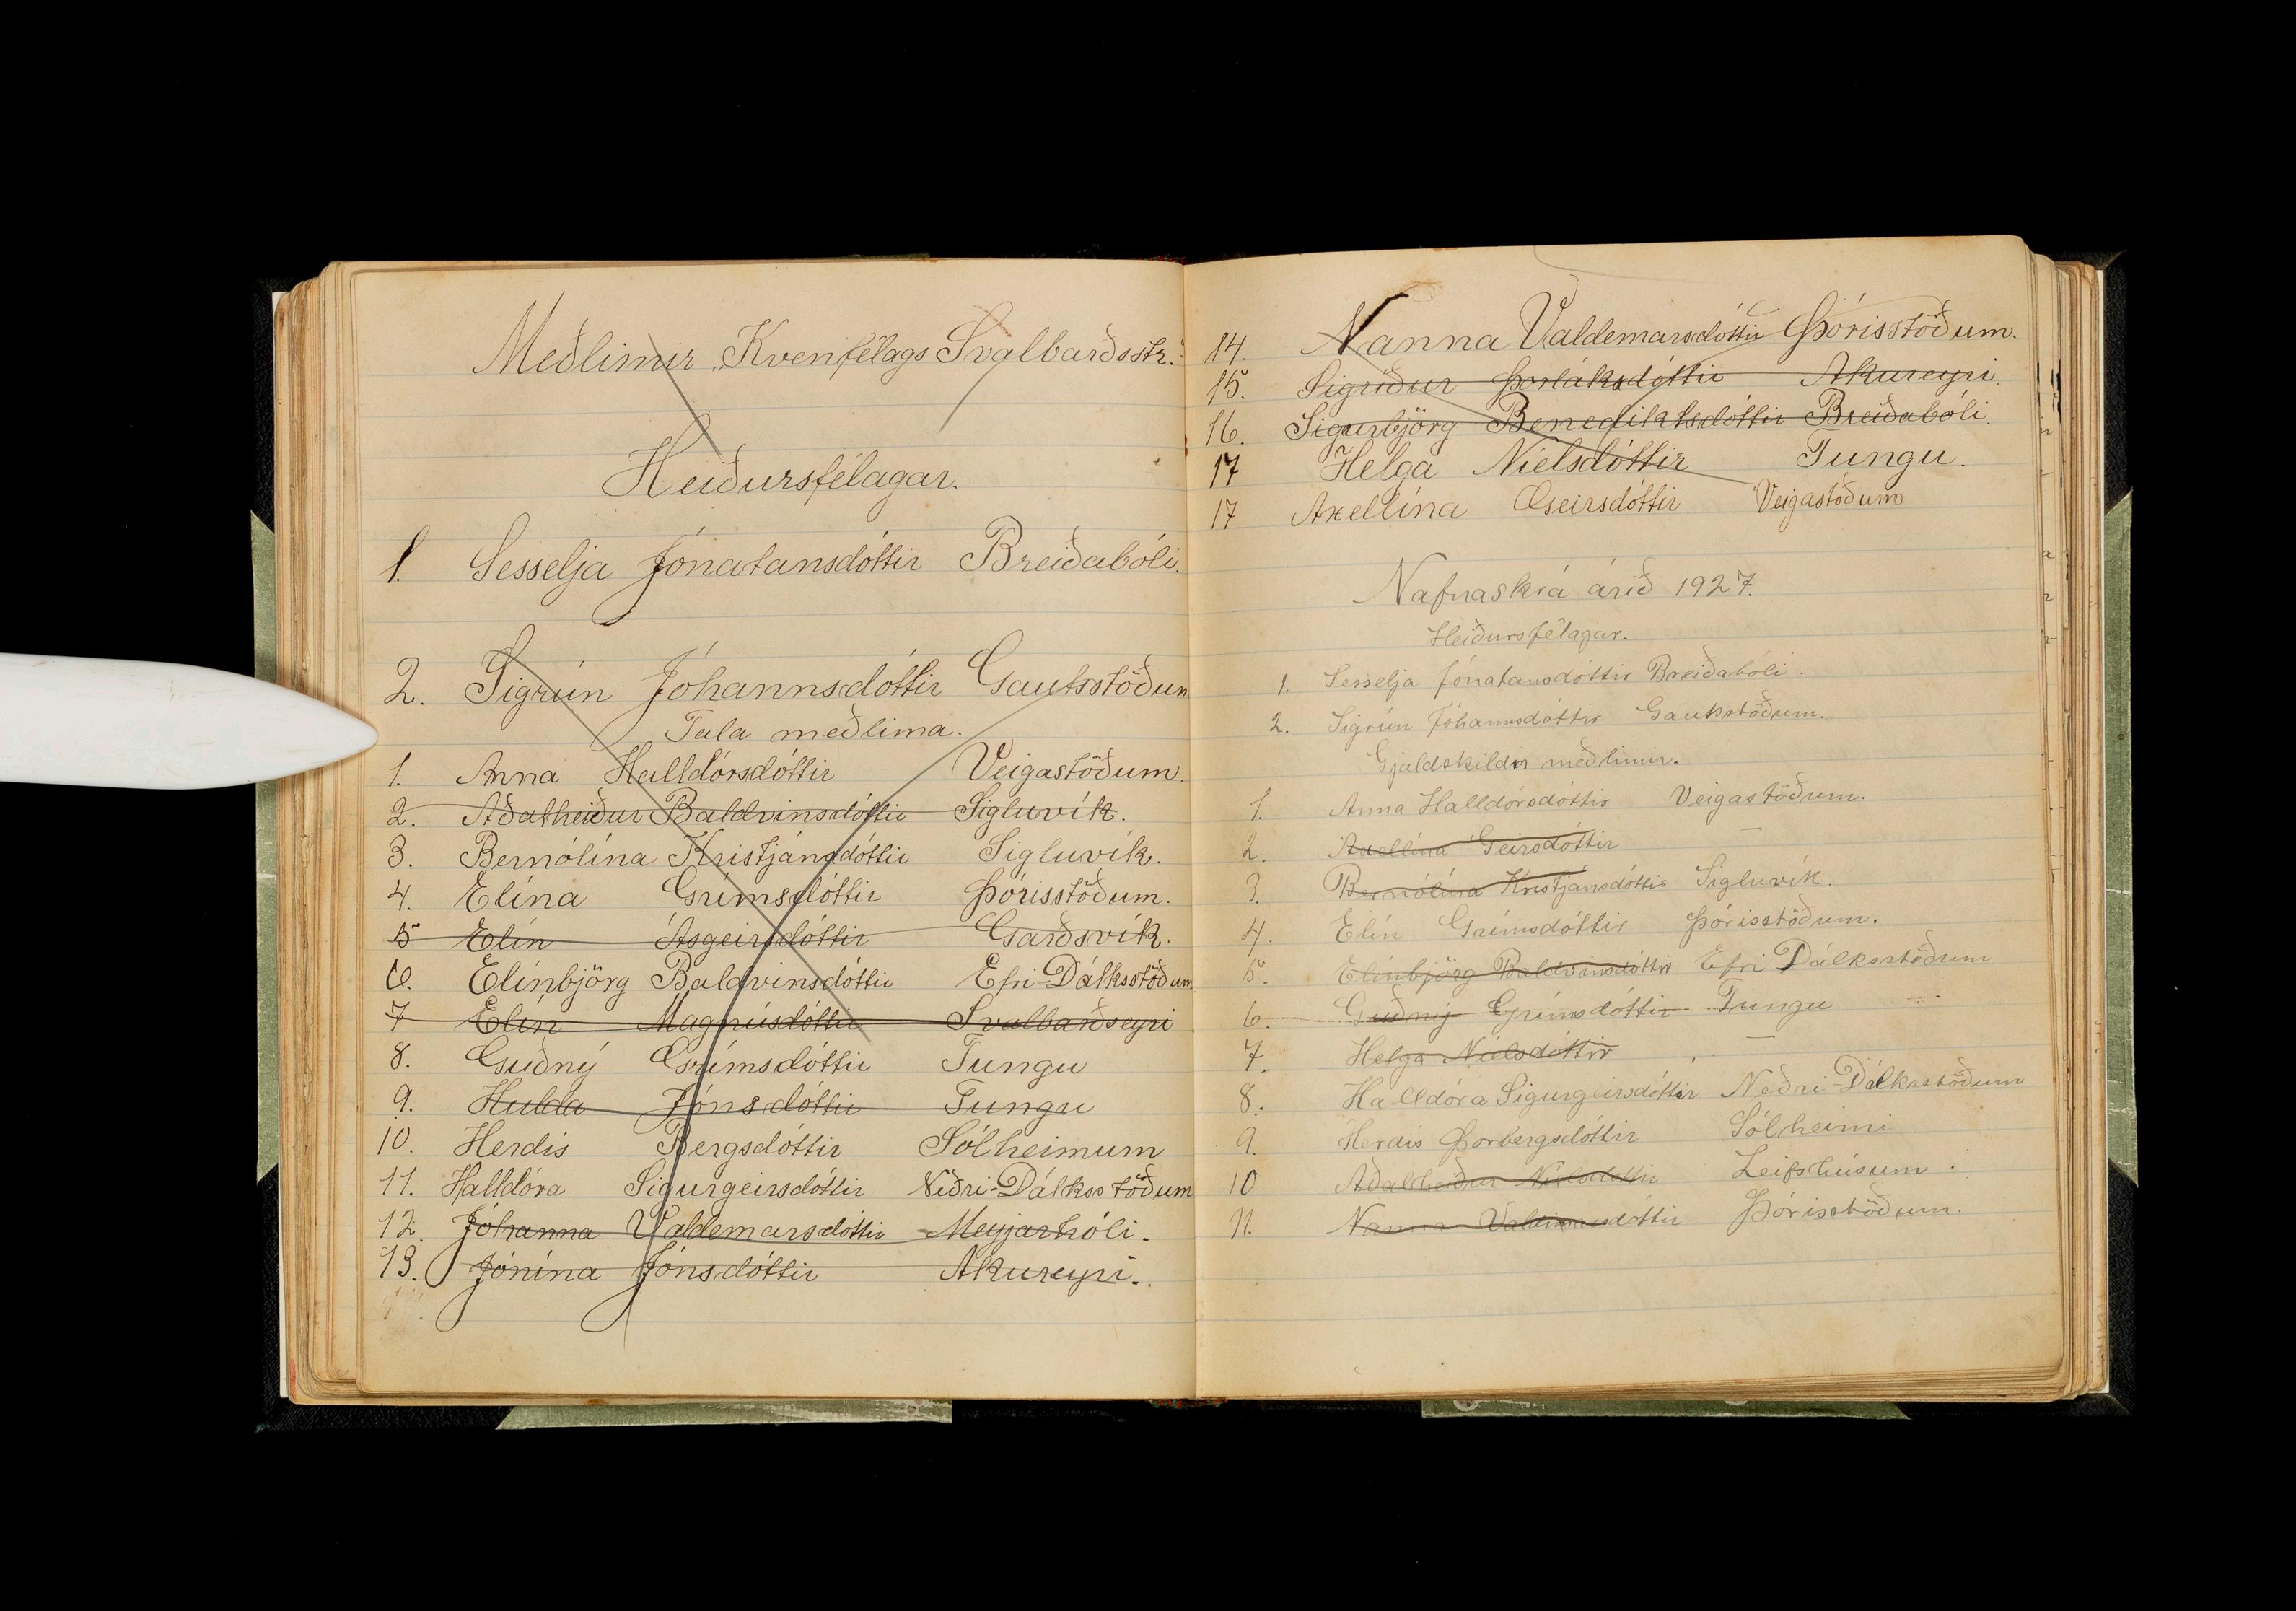 Meðlimir „Kvenfélags Svalbarðsstr."
Heiðursfélagar.
1. Sesselja Jónatansdóttir Breiðabóli.
2. Sigrún Jóhannsdóttir Gautsstöðum
Tala meðlima.
1. Anna Halldórsdóttir Veigastöðum.
2. Aðalheiður Baldvinsdóttir Sigluvík.
3. Bernólína Kristjánsdóttir Sigluvík.
4. Elína Grímsdóttir Þórisstöðum.
5 Elín Ásgeirsdóttir Garðsvík.
6. Elínbjörg Baldvinsdóttir Efri-Dálksstöðum
7 Elín Magnúsdóttir Svalbarðseyri
8. Guðný Grímsdóttir Tungu
9. Hulda Jónsdóttir Tungu
10. Herdís Bergsdóttir Sólheimum
11. Halldóra Sigurgeirsdóttir Niðri-Dálksstöðum
12. Jóhanna Valdemarsdóttir Meyjarhóli.
13. Jónína Jónsdóttir Akureyri.
14. Nanna Valdemarsdóttir Þórisstöðum.
15. Sigríður Þorláksdóttir Akureyri.
16. Sigurbjörg Benediktsdóttir Breiðabóli.
17 Helga Níelsdóttir Tungu.
17 Axellína Geirsdóttir Veigastöðum
Nafnaskrá árið 1927.
Heiðursfélagar.
1. Sesselja Jónatansdóttir Breiðabóli.
2. Sigrún Jóhannsdóttir Gautsstöðum.
Gjaldskildir meðlimir.
1. Anna Halldórsdóttir Veigastöðum.
2. Axellína Geirsdóttir —
3. Bernólína Kristjánsdóttir Sigluvík.
4. Elín Grímsdóttir Þórisstöðum.
5. Elínbjörg Baldvinsdóttir Efri Dálksstöðum
6. Guðný Grímsdóttir Tungu
7. Helga Níelsdóttir —
8. Halldóra Sigurgeirsdóttir Neðri-Dálksstöðum
9. Herdís Þorbergsdóttir Sólheimi
10 Aðalheiður Níelsdóttir Leifshúsum.
11. Nanna Valdimarsdóttir Þórisstöðum.